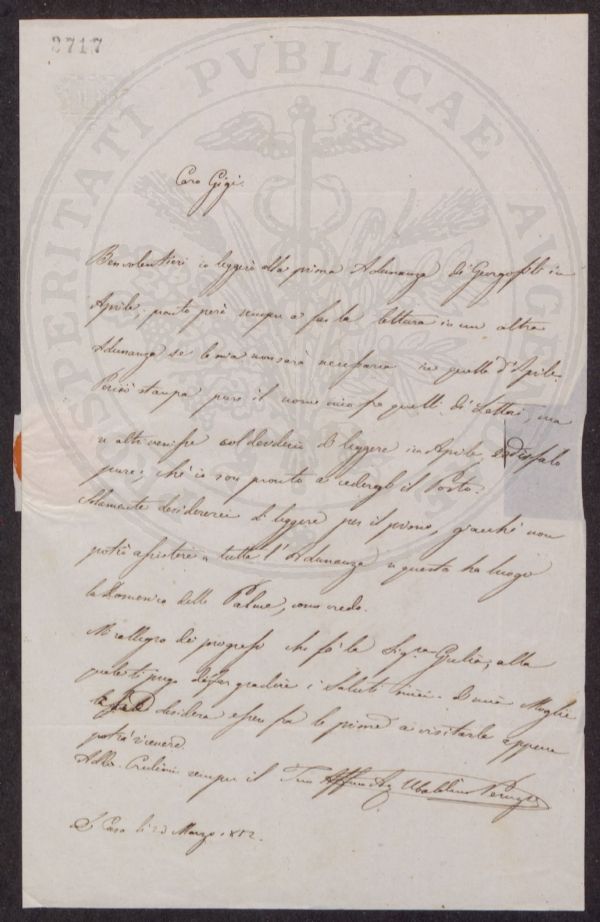 2717
PROSPERITATI PVBLICAE AVGENDAE
Caro Gigi.
Ben volentieri io leggerò alla prima Adunanza di Georgofili in
Aprile; pronto però sempre a far la lettura in un altra
Adunanza se la mia non sarà necessaria in quella d'Aprile.
Perciò stampa pure il nome mio fra quelli di Lettori, ma
se altri venisse col desiderio di leggere in Aprile,
pure; chè io son pronto a cedergli il Posto.
Solamente desidererei di leggere per il primo, giacchè non
potrò assistere a tutta l'Adunanza se questa ha luogo
la Domenica delle Palme, come credo.
Mi rallegro dei progressi che fà la Sig.ra Giulia, alla
quale ti prego di far gradire i Saluti miei. La mia Moglie
desidera essere fra le prime a visitarla appena
potrà ricevere.
Addio. Credimi sempre il Tuo Affmo Ubaldino Peruzzi
S. Casa li 23 Marzo 1852.